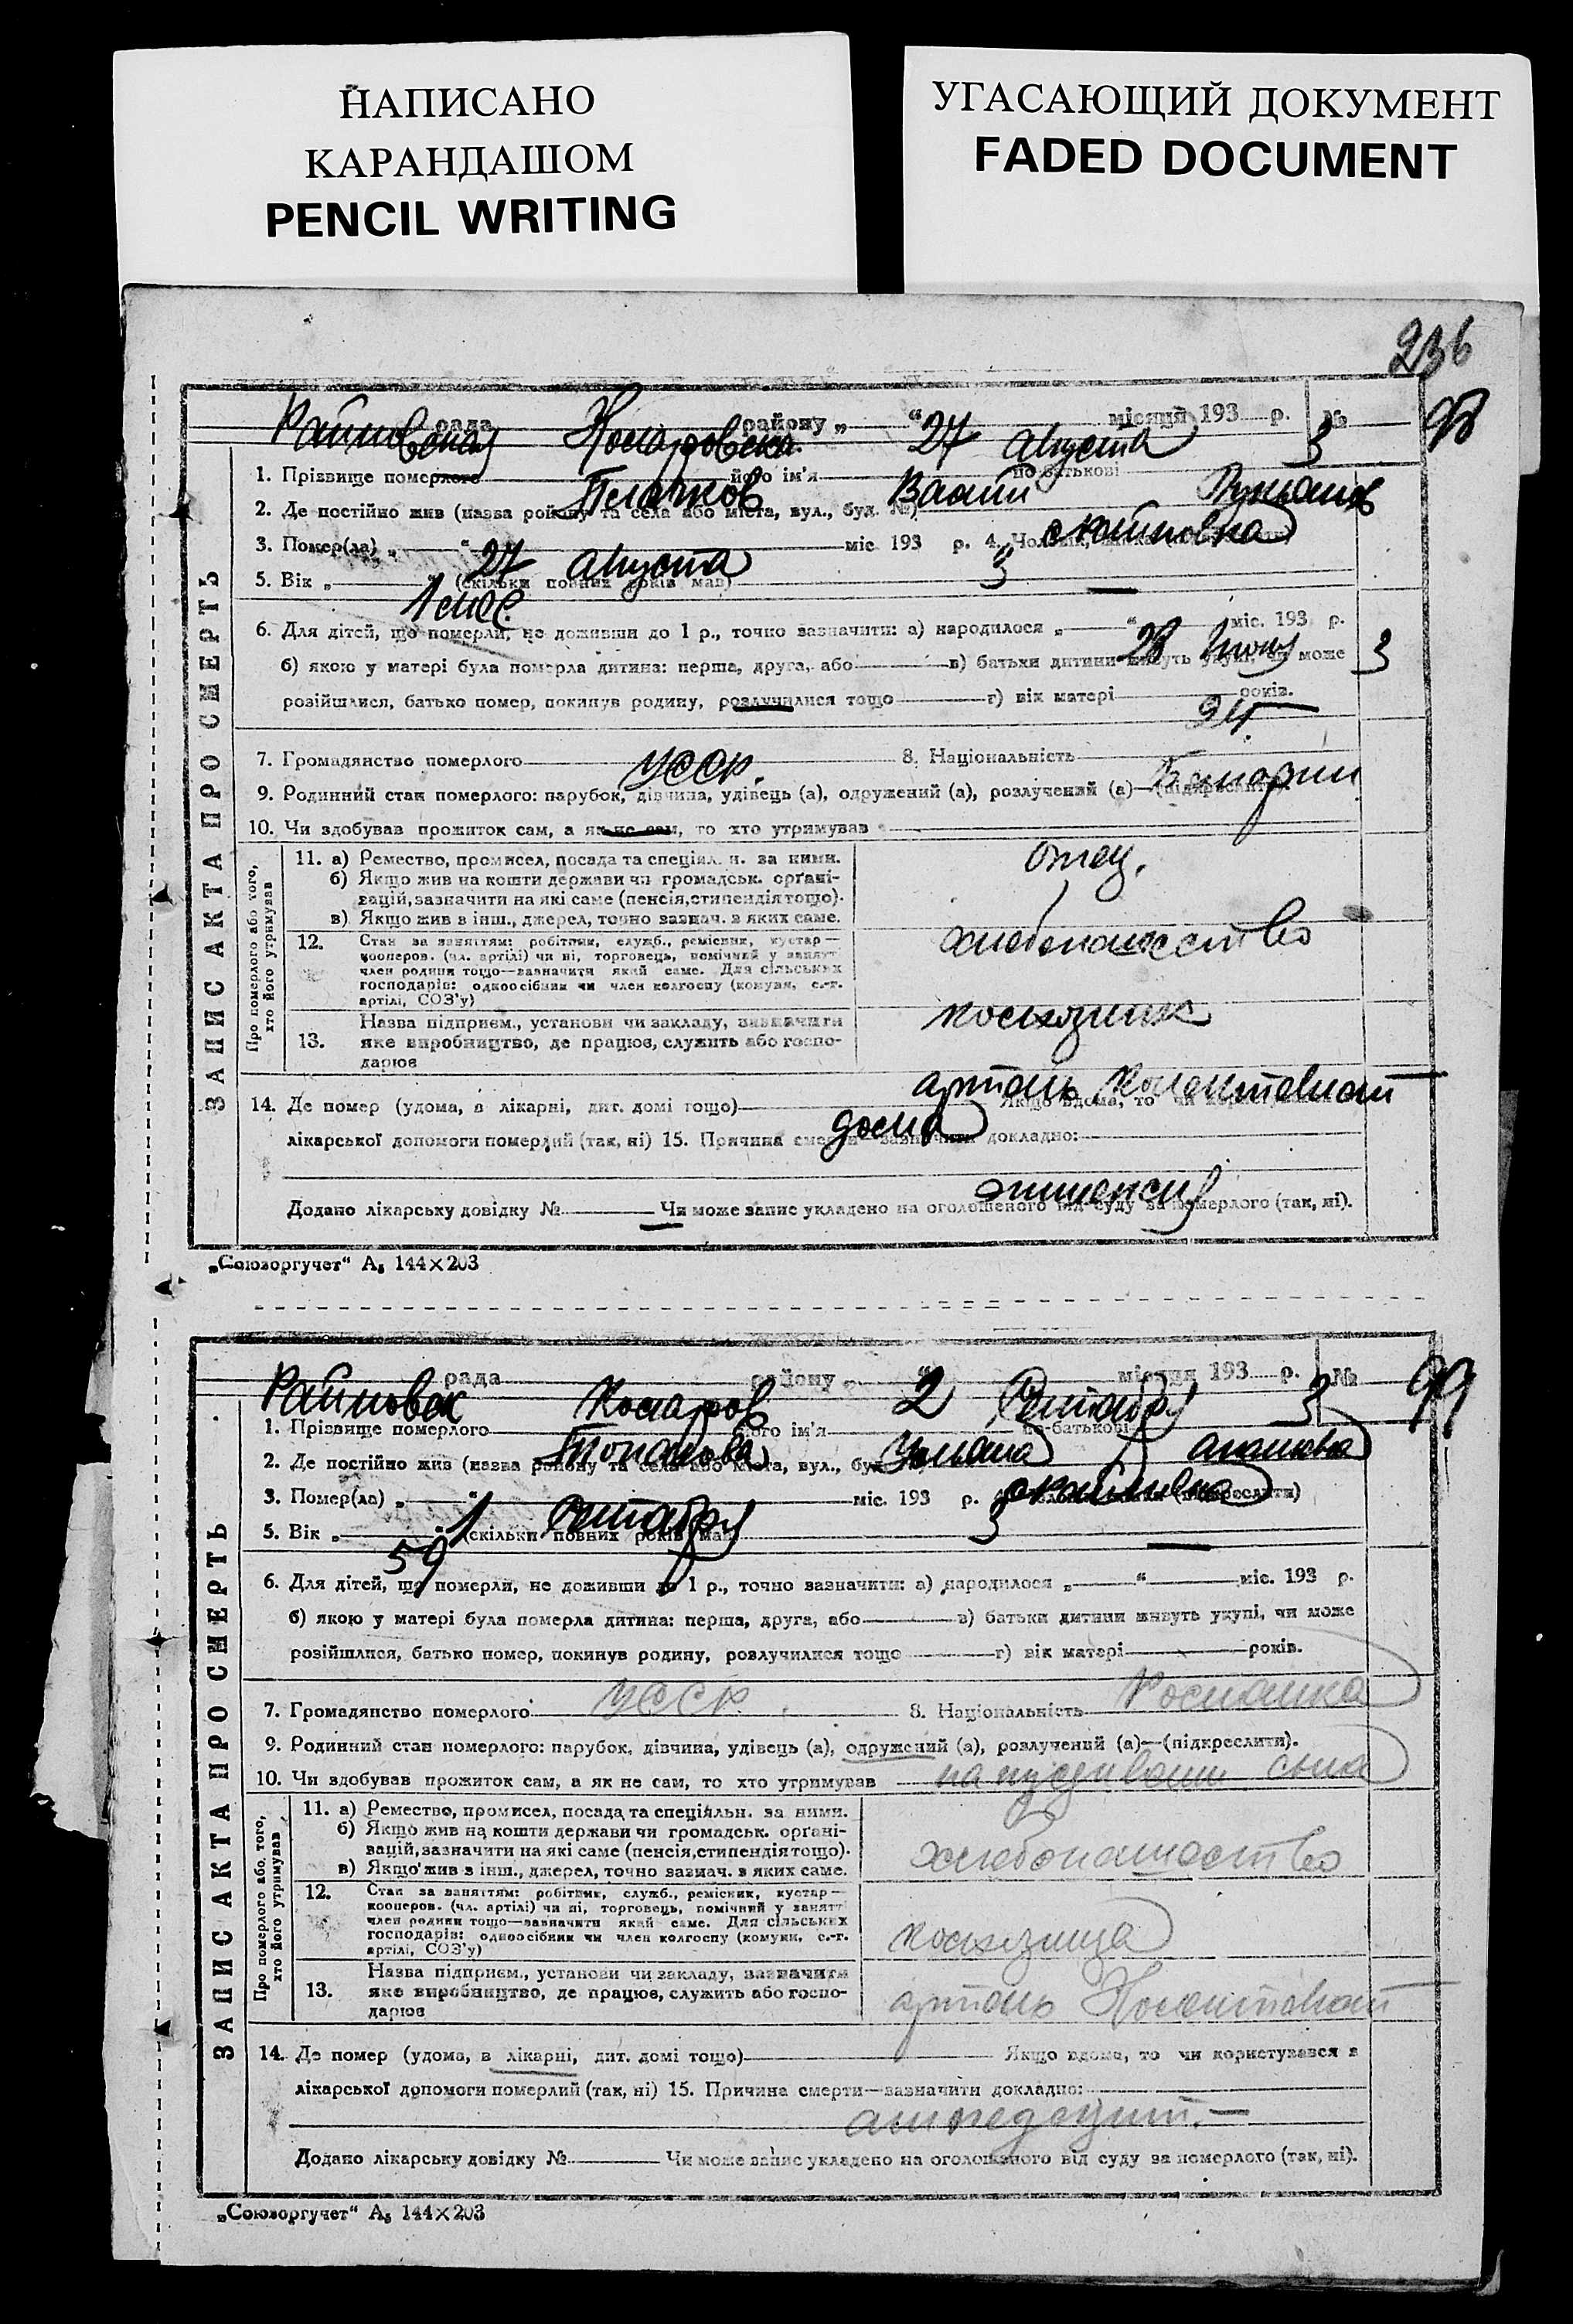 НАПИСАНО
КАРАНДАШОМ
PENCIL WRITING
УГАСАЮЩИЙ ДОКУМЕНТ
FADED DOCUMENT
236
ЗАПИС АКТА ПРО СМЕРТЬ
рада району „ “ 27 августа місяця 193 3 р. № 98
1. Прізвище померлого його ім'я Васили по батькові
2. Де постійно жив (назва району та села або міста, вул., буд. №)
3. Помер(ла) „ 27 “ августа міс. 193 3 р. 4.
5. Вік „ 1 мес. (скільки повних років мав)
6. Для дітей, що померли, не доживши до 1 р., точно зазначити: а) народилося „ 28 “ июня міс. 193 3 р.
б) якою у матері була померла дитина: перша, друга, або в) батьки дитини живуть укупі, чи може
розійшлися, батько помер, покинув родину, розлучилися тощо г) вік матері років.
7. Громадянство померлого УССР. 8. Національність
9. Родинний стан померлого: парубок, дівчина, удівець (а), одружений (а), розлучений (а)—(підкреслити).
10. Чи здобував прожиток сам, а як не сам, то хто утримував отец.
Про померлого або того, хто його утримував
11. а) Ремество, промисел, посада та спеціяльн. за ними.
б) Якщо жив на кошти держави чи громадськ. органі-
зацій, зазначити на які саме (пенсія, стипендія тощо).
в) Якщо жив в інш., джерел, точно зазнач. з яких саме.
хлебопашество
12. Стан за заняттям: робітник, служб., ремісник, кустар—
кооперов. (чл. артілі) чи ні, торговець, помічний у занятт
член родини тощо—зазначити який саме. Для сільських
господарів: одноосібник чи член колгоспу (комуни, с.-г.
артілі, СОЗ'у)
колхозник
13. Назва підприєм., установи чи закладу, зазначити
яке виробництво, де працює, служить або госпо-
дарює
артель
14. Де помер (удома, в лікарні, дит. домі тощо) дома Якщо вдома, то чи
лікарської допомоги померлий (так, ні) 15. Причина смерти—зазначити докладно:
Додано лікарську довідку № Чи може запис укладено на оголошеного від суду за померлого (так, ні).
„Союзоргучет“ А₅ 144×203
ЗАПИС АКТА ПРО СМЕРТЬ
рада району „ “ 2 місяця 193 3 р. № 99
1. Прізвище померлого його ім'я по-батькові
2. Де постійно жив (назва району та села або міста, вул., буд.
3. Помер(ла) „ 1 “ міс. 193 3 р. 4.
5. Вік „ 59 (скільки повних років мав)
6. Для дітей, що померли, не доживши до 1 р., точно зазначити: а) народилося „ “ міс. 193 р.
б) якою у матері була померла дитина: перша, друга, або в) батьки дитини живуть укупі, чи може
розійшлися, батько помер, покинув родину, розлучилися тощо г) вік матері років.
7. Громадянство померлого УССР. 8. Національність
9. Родинний стан померлого: парубок, дівчина, удівець (а), одружений (а), розлучений (а)—(підкреслити).
10. Чи здобував прожиток сам, а як не сам, то хто утримував на сына
Про померлого або того, хто його утримував
11. а) Ремество, промисел, посада та спеціяльн. за ними.
б) Якщо жив на кошти держави чи громадськ. органі-
зацій, зазначити на які саме (пенсія, стипендія тощо).
в) Якщо жив з інш., джерел, точно зазнач. з яких саме.
хлебопашество
12. Стан за заняттям: робітник, служб., ремісник, кустар—
кооперов. (чл. артілі) чи ні, торговець, помічний у занятт
член родини тощо—зазначити який саме. Для сільських
господарів: одноосібник чи член колгоспу (комуни, с.-г.
артілі, СОЗ'у)
13. Назва підприєм., установи чи закладу, зазначити
яке виробництво, де працює, служить або госпо-
дарює
артель
14. Де помер (удома, в лікарні, дит. домі тощо) Якщо вдома, то чи користувався з
лікарської допомоги померлий (так, ні) 15. Причина смерти—зазначити докладно:
Додано лікарську довідку № Чи може запис укладено на оголошеного від суду за померлого (так, ні).
„Союзоргучет“ А₅ 144×203